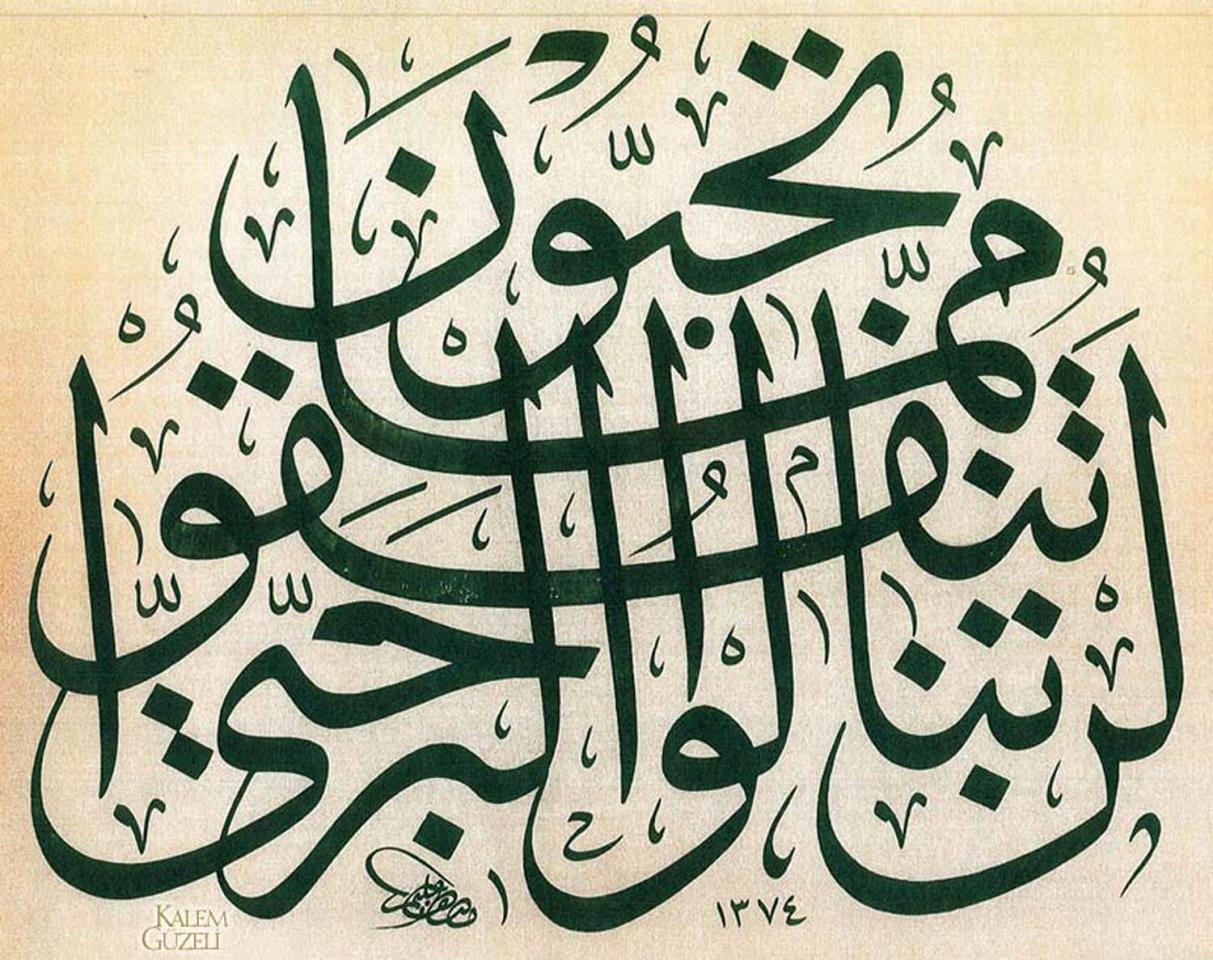 لن تنالوا البر حتى
تنفقوا
مما تحبون
١٣٧٤
KALEM
GÜZELİ